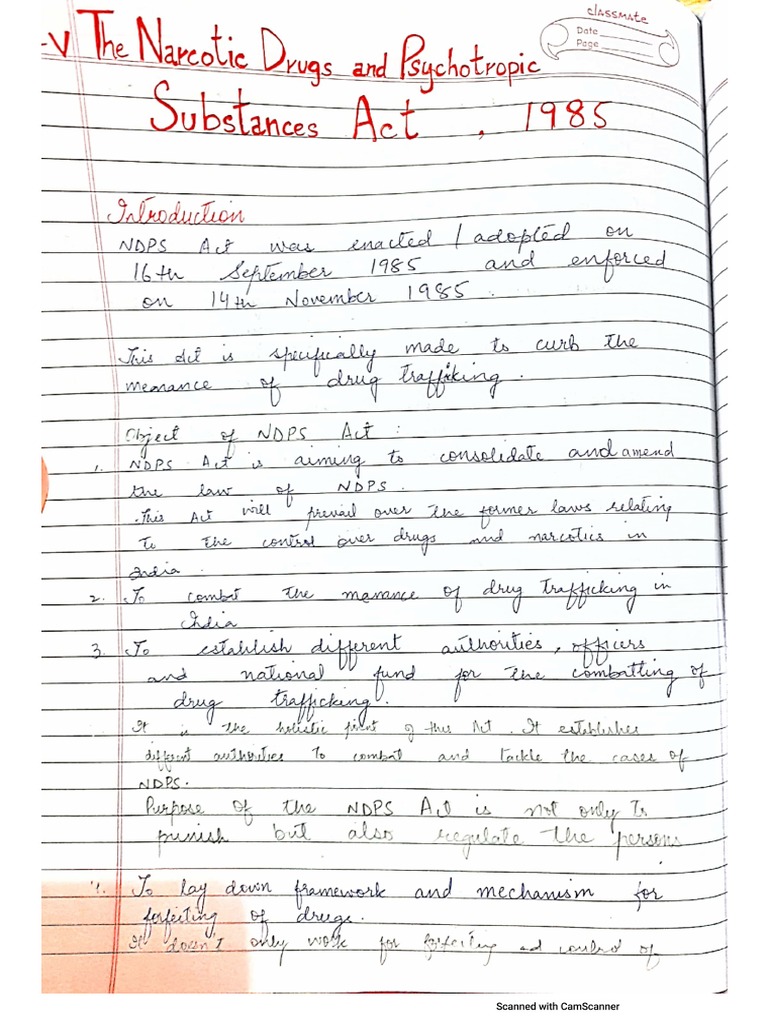 classmate
Date
Page
-V The Narcotic Drugs and Psychotropic
Substances Act , 1985
Introduction
NDPS Act was enacted / adopted on
16th September 1985 and enforced
on 14th November 1985 .
This Act is specifically made to curb the
menance of drug traffiking .
Object of NDPS Act :
1. NDPS Act is aiming to consolidate and amend
the law of NDPS .
. This Act will prevail over the former laws relating
to the control over drugs and narcotics in
India .
2. To combat the menance of drug trafficking in
India
3. To establish different authorities , officers
and national fund for the combatting of
drug trafficking .
It is the holistic point of this Act . It establishes
different authorities to combat and tackle the cases of
NDPS .
Purpose of the NDPS Act is not only to
punish but also regulate the persons
4. To lay down framework and mechanism for
forfeiting of drugs .
It doesn't only work for forfeiting and control of
Scanned with CamScanner